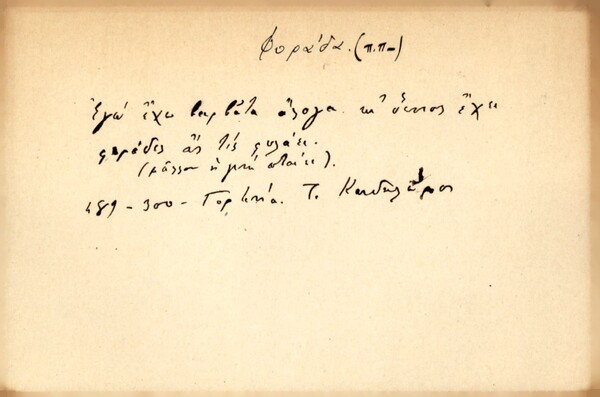 Φοράδα. (π.π-)
Ἐγώ ἔχω βαρβᾶτα ἄλογα κι' ὅποιος ἔχει
φοράδες ἄς τίς φυλάει.
(μᾶλλον ἡ μνή φταίει).
489 - 300 - Γορτυνία. Τ. Κανδηλῶρος